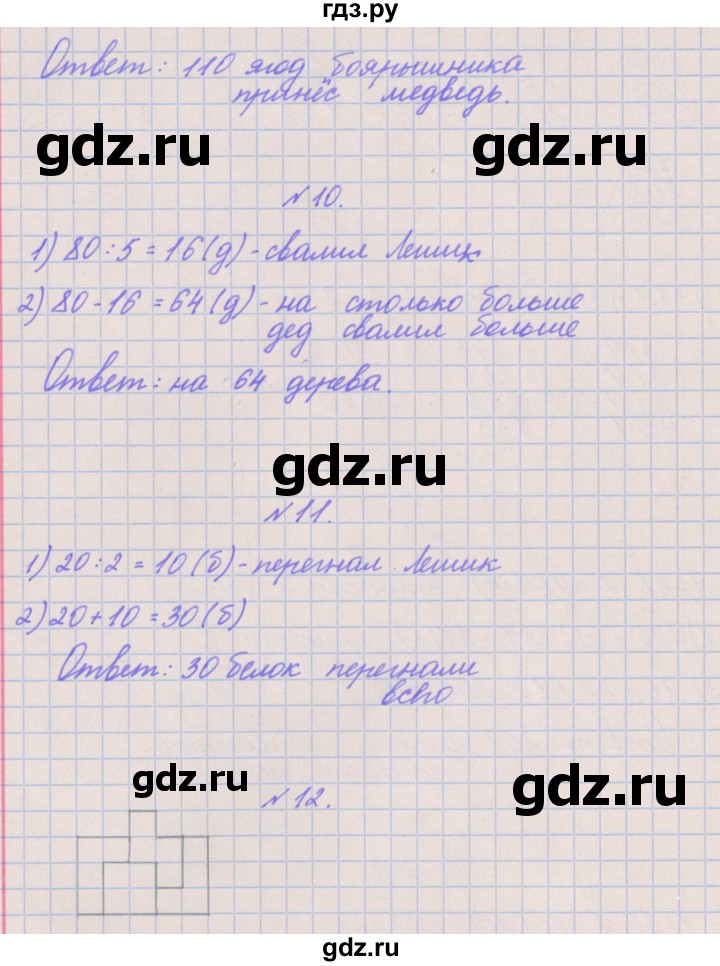 гдз.ру
Ответ: 110 ягод боярышника
принёс медведь.
gdz.ru gdz.ru
№10.
1) 80:5=16(д)-свалил Лешик
2) 80-16=64(д)-на столько больше
дед свалил больше
Ответ: на 64 дерева.
gdz.ru
№11.
1) 20:2=10(б)-перегнал Лешик
2) 20+10=30(б)
Ответ: 30 белок перегнали
всего
gdz.ru gdz.ru
№12.
gdz.ru